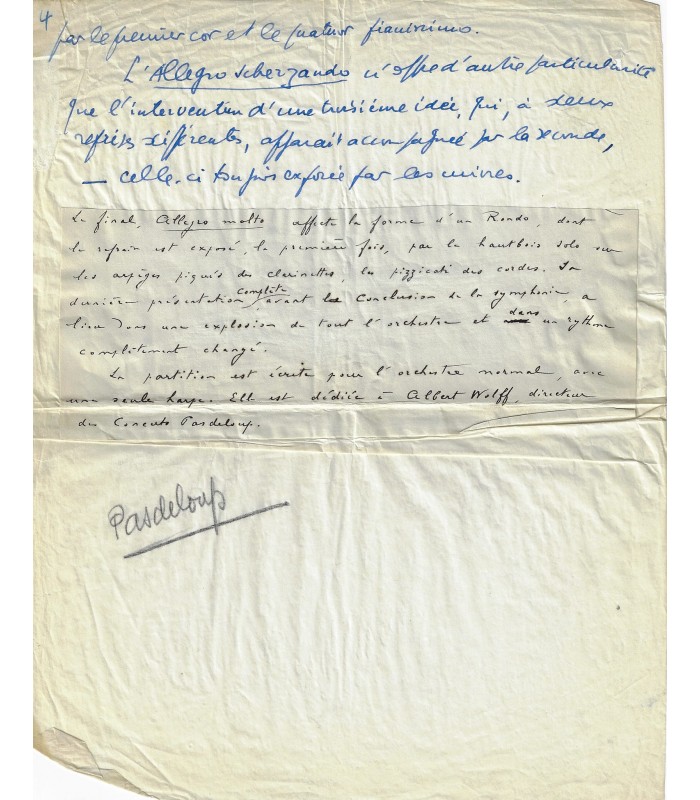 4
par le premier cor et le quatuor pianissimo.
L'Allegro scherzando n'offre d'autre particularité
que l'intervention d'une troisième idée, qui, à deux
reprises différentes, apparait accompagnée par la seconde,
— celle-ci toujours exposée par les cuivres.
Le final, Allegro molto affecte la forme d'un Rondo, dont
le refrain est exposé, la première fois, par le hautbois solo sur
les arpèges piqués des clarinettes, les pizzicati des cordes. Sa
dernière présentation complète, avant la conclusion de la symphonie, a
lieu dans une explosion de tout l'orchestre et dans un rythme
complètement changé.
La partition est écrite pour l'orchestre normal, avec
une seule harpe. Elle est dédiée à Albert Wolff, directeur
des Concerts Pasdeloup.
Pasdeloup